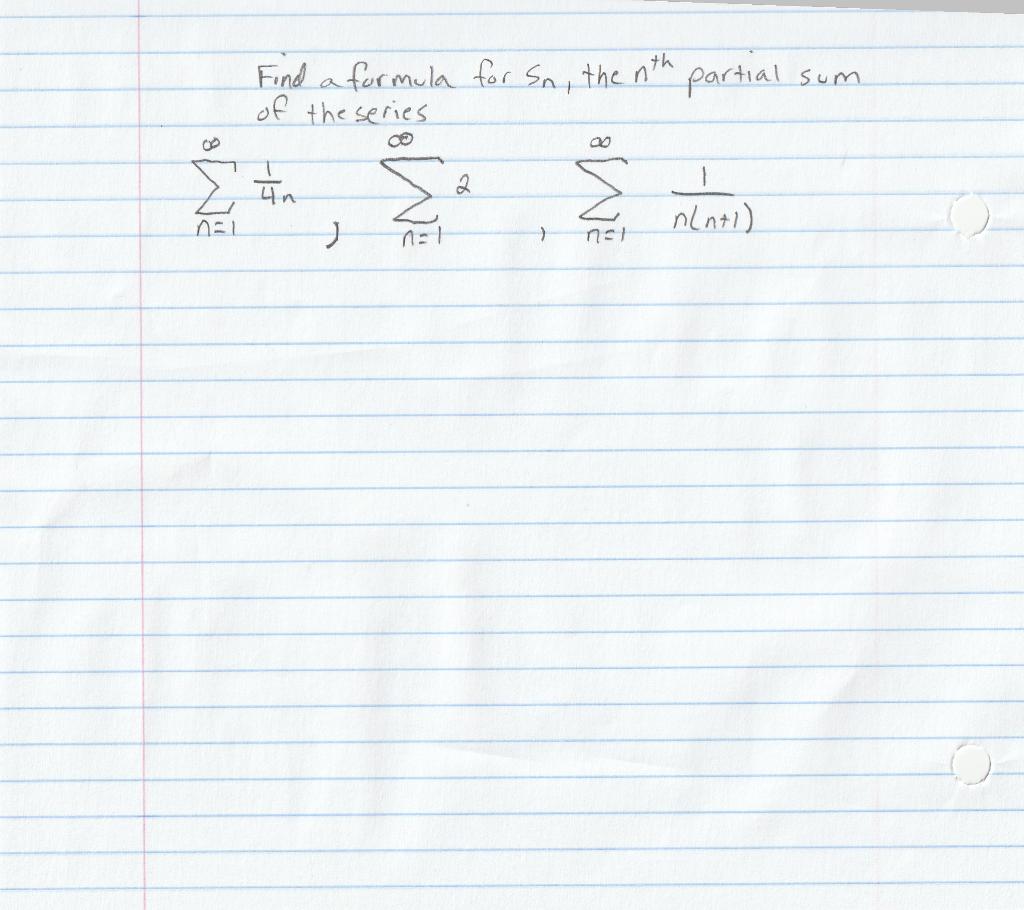 Find a formula for Sn, the n^th partial sum
of the series
∞ ∑ n=1 1/4n , ∞ ∑ n=1 2 , ∞ ∑ n=1 1/n(n+1)